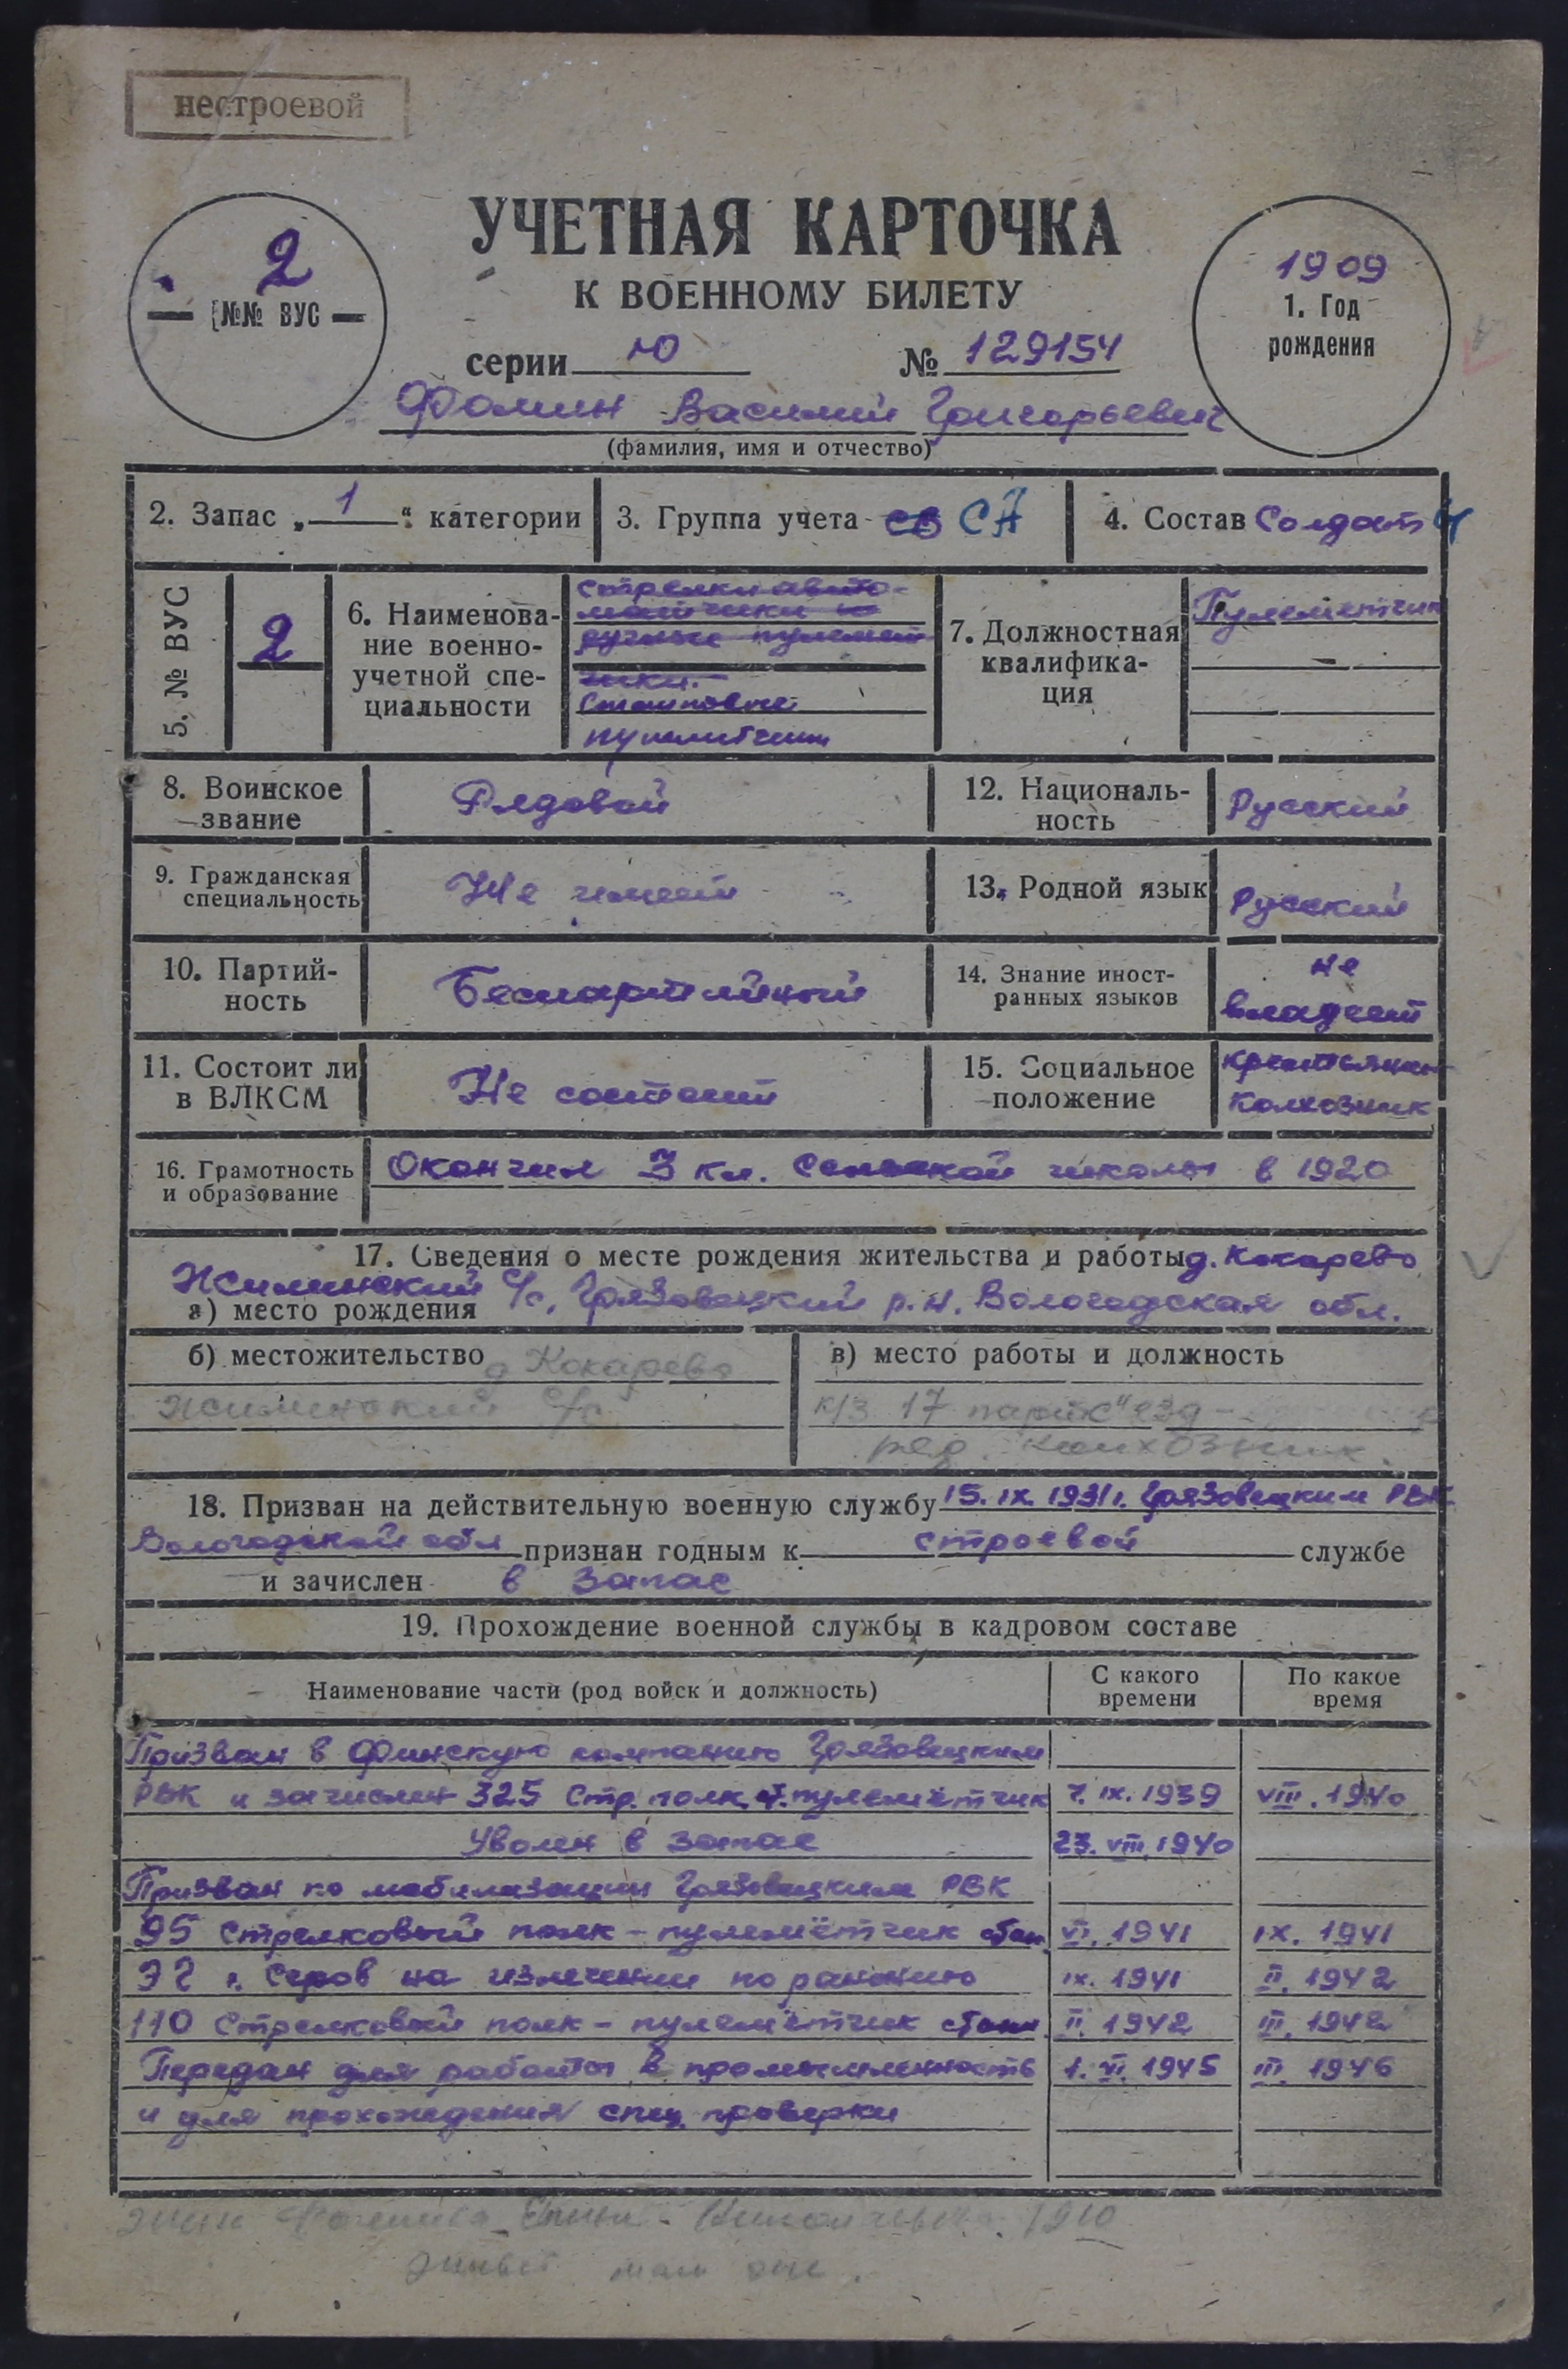 нестроевой
УЧЕТНАЯ КАРТОЧКА
К ВОЕННОМУ БИЛЕТУ
2
№№ ВУС
1909
1. Год
рождения
серии Ю № 129154
Фомин Василий Григорьевич
(фамилия, имя и отчество)
2. Запас „ 1 “ категории
3. Группа учета СВ СА
4. Состав Солдат
5. № ВУС
2
6. Наименова-
ние военно-
учетной спе-
циальности
стрелки авто-
матчики и
ручные пулемет
чики.
Станковые
пулеметчики
7. Должностная
квалифика-
ция
Пулеметчик
8. Воинское
звание
Рядовой
12. Националь-
ность
Русский
9. Гражданская
специальность
Не имеет
13. Родной язык
Русский
10. Партий-
ность
Беспартийный
14. Знание иност-
ранных языков
не
владеет
11. Состоит ли
в ВЛКСМ
Не состоит
15. Социальное
положение
крестьянин
Колхозник
16. Грамотность
и образование
Окончил 3 кл. Сельской школы в 1920
17. Сведения о месте рождения жительства и работы д. Кокарево
Жилинский с/с, Грязовецкий р.н. Вологодская обл.
а) место рождения
б) местожительство д Кокарево
Жилинский с/с
в) место работы и должность
к/з 17 партс"езд
ряд. колхозник.
18. Призван на действительную военную службу 15. IX. 1931г. Грязовецким РВК
Вологодской обл признан годным к строевой службе
и зачислен в запас
19. Прохождение военной службы в кадровом составе
Наименование части (род войск и должность)
С какого
времени
По какое
время
Призван в Финскую компанию Грязовецким
РВК и зачислен 325 Стр. полк, пулемётчик 7. IX. 1939 VIII. 1940
Уволен в запас 23. VIII. 1940
Призван по мобилизации Грязовецким РВК
95 Стрелковый полк - пулемётчик VI. 1941 IX. 1941
ЭГ г. Серов на излечении по ранению IX. 1941 II. 1942
110 Стрелковый полк - пулемётчик II. 1942 III. 1942
Передан для работы в промышленность 1. VI. 1945 III. 1946
и для прохождения спец. проверки
жена Фомина Николаевна 1910
живёт там же.